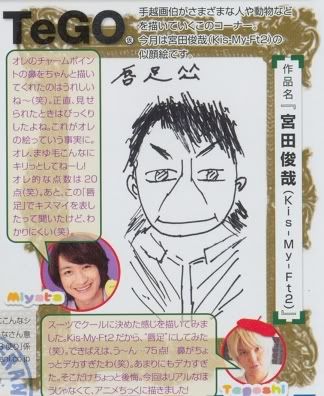 TeGO
手越画伯がさまざまな人や動物など
を描いていくこのコーナー。
今月は宮田俊哉(Kis-My-Ft2)の
似顔絵です。
作品名『宮田俊哉(Kis-My-Ft2)』
唇足
オレのチャームポイン
トの鼻をちゃんと描い
てくれたのはうれしい
ね〜(笑)。正直、見せ
られたときはびっくり
したよね。これがオレ
の絵っていう事実に。
オレ、まゆ毛こんなに
キリっとしてねーし!
オレ的な点数は20
点(笑)。あと、この「唇
足」でキスマイを表し
たって聞いたけど、わ
かりにくい(笑)。
Miyata
スーツでクールに決めた感じを描いてみま
した。Kis-My-Ft2だから、“唇足”にしてみた
(笑)。できばえは、う〜ん…75点! 鼻がちょ
っとデカすぎたわ(笑)。あまりにもデカすぎ
た。そこだけちょっと後悔。今回はリアルなほ
うじゃなくて、アニメちっくに描きました!
Tegoshi
こんなシ
なさん、意
ani.co.jp